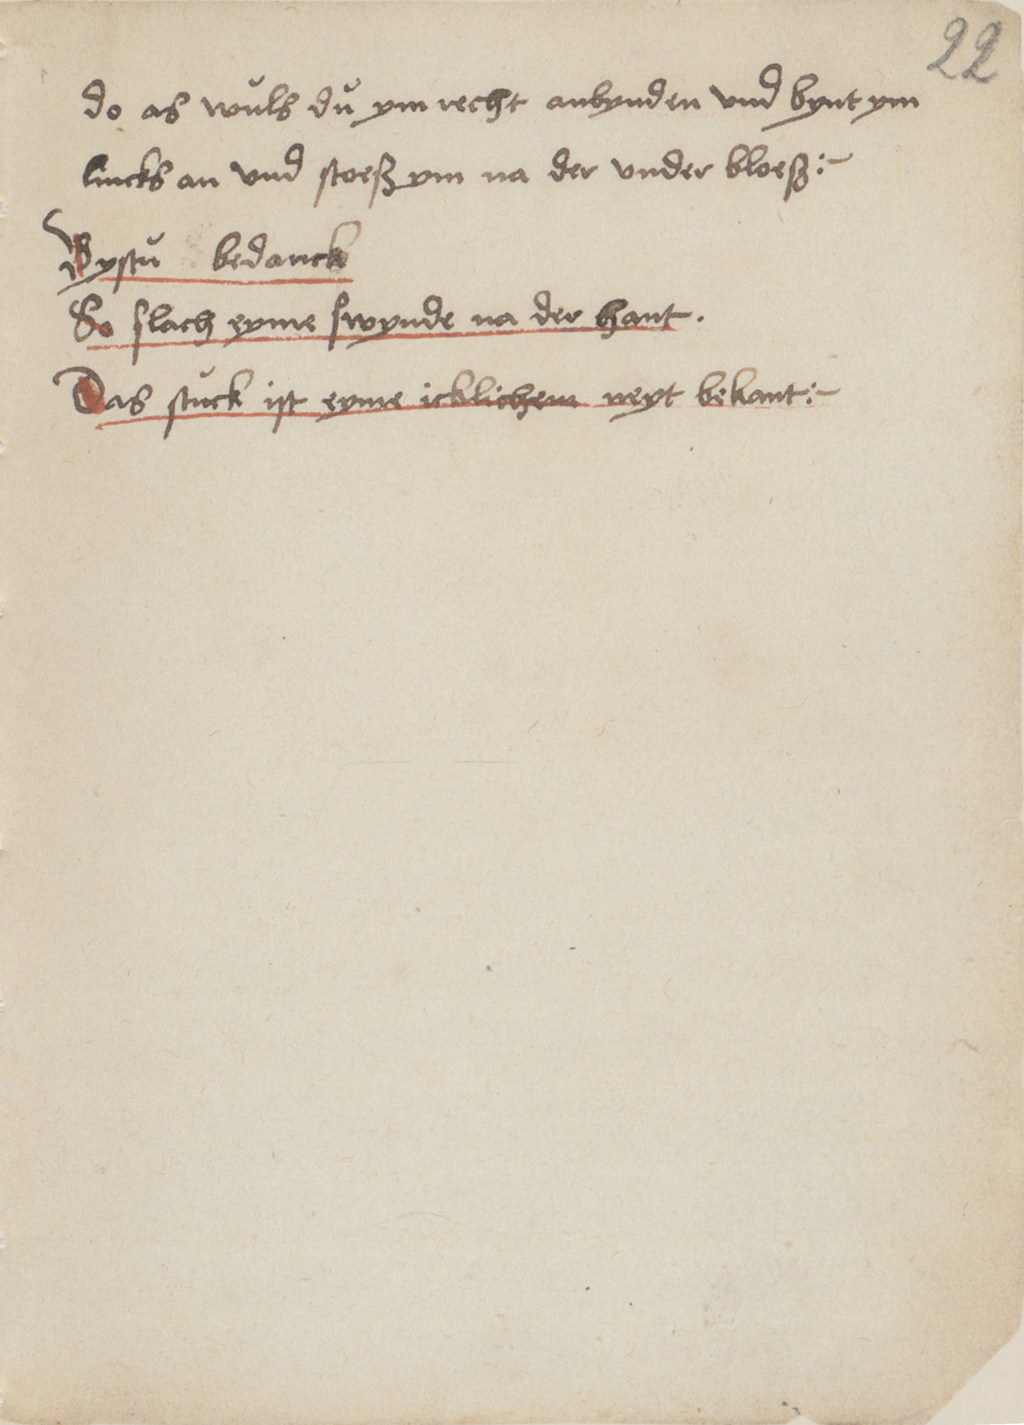 22
do as wuls dŭ ym recht anbynden vnd bynt ym
lincks an vnd stoeß ym na der vnder bloeß :~
Bystŭ bedanck
So slach eyme swynde na der hant .
Das stŭck ist eyme icklichem neyt bekant :~